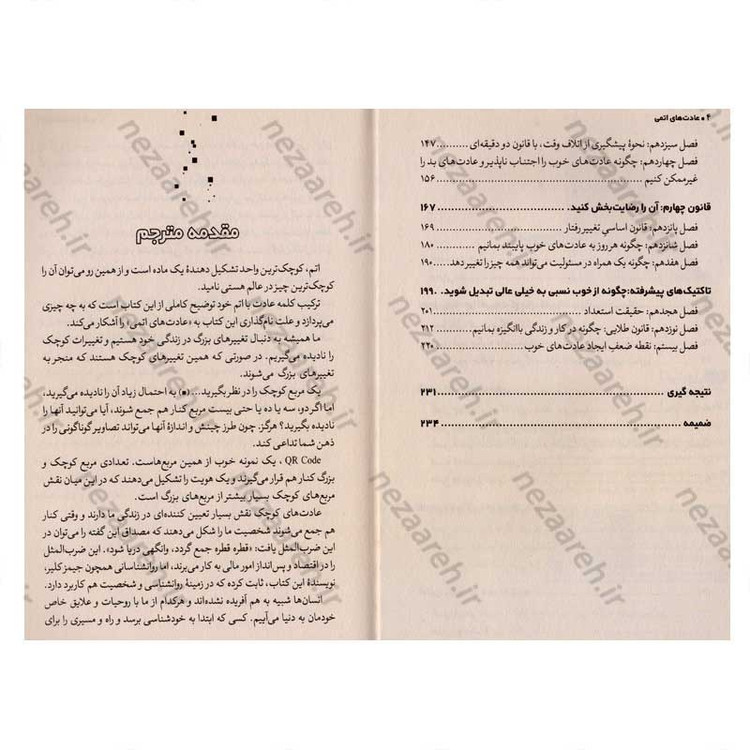 ۴ • عادت‌های اتمی
فصل سیزدهم: نحوهٔ پیشگیری از اتلاف وقت، با قانون دو دقیقه‌ای .......... ۱۴۷
فصل چهاردهم: چگونه عادت‌های خوب را اجتناب ناپذیر و عادت‌های بد را
غیرممکن کنیم .......... ۱۵۶
قانون چهارم: آن را رضایت‌بخش کنید. .......... ۱۶۷
فصل پانزدهم: قانون اساسی تغییر رفتار .......... ۱۶۹
فصل شانزدهم: چگونه هر روز به عادت‌های خوب پایبند بمانیم .......... ۱۸۰
فصل هفدهم: چگونه یک همراه در مسئولیت می‌تواند همه چیز را تغییر دهد .......... ۱۹۰
تاکتیک‌های پیشرفته: چگونه از خوب نسبی به خیلی عالی تبدیل شوید. .......... ۱۹۹
فصل هجدهم: حقیقت استعداد .......... ۲۰۱
فصل نوزدهم: قانون طلایی: چگونه در کار و زندگی باانگیزه بمانیم .......... ۲۱۲
فصل بیستم: نقطه ضعف ایجاد عادت‌های خوب .......... ۲۲۰
نتیجه گیری .......... ۲۳۱
ضمیمه .......... ۲۳۴
مقدمه مترجم
اتم، کوچک‌ترین واحد تشکیل دهندهٔ یک ماده است و از همین رو می‌توان آن را
کوچک‌ترین چیز در عالم هستی نامید.
ترکیب کلمه عادت با اتم خود توضیح کاملی از این کتاب است که به چه چیزی
می‌پردازد و علت نام‌گذاری این کتاب به «عادت‌های اتمی» را آشکار می‌کند.
ما همیشه به دنبال تغییرهای بزرگ در زندگی خود هستیم و تغییرات کوچک
را نادیده می‌گیریم. در صورتی که همین تغییرهای کوچک هستند که منجر به
تغییرهای بزرگ می‌شوند.
یک مربع کوچک را در نظر بگیرید... (▪) به احتمال زیاد آن را نادیده می‌گیرید،
اما اگر دو، سه یا ده یا حتی بیست مربع کنار هم جمع شوند، آیا می‌توانید آنها را
نادیده بگیرید؟ هرگز. چون طرز چینش و اندازهٔ آنها می‌تواند تصاویر گوناگونی را در
ذهن شما تداعی کند.
QR Code ، یک نمونه خوب از همین مربع‌هاست. تعدادی مربع کوچک و
بزرگ کنار هم قرار می‌گیرند و یک هویت را تشکیل می‌دهند که در این میان نقش
مربع‌های کوچک بسیار بیشتر از مربع‌های بزرگ است.
عادت‌های کوچک نقش بسیار تعیین کننده‌ای در زندگی ما دارند و وقتی کنار
هم جمع می‌شوند شخصیت ما را شکل می‌دهند که مصداق این گفته را می‌توان در
این ضرب‌المثل یافت: «قطره قطره جمع گردد، وانگهی دریا شود». این ضرب‌المثل
را در اقتصاد و پس‌انداز امور مالی به کار می‌برند، اما روانشناسانی همچون جیمزکلیر،
نویسندهٔ این کتاب، ثابت کرده که در زمینهٔ روانشناسی و شخصیت هم کاربرد دارد.
انسان‌ها شبیه به هم آفریده نشده‌اند و هرکدام از ما با روحیات و علایق خاص
خودمان به دنیا می‌آییم. کسی که ابتدا به خودشناسی برسد و راه و مسیری را برای
nezaareh.ir
nezaareh.ir
nezaareh.ir
nezaareh.ir
nezaareh.ir
nezaareh.ir
nezaareh.ir
nezaareh.ir
nezaareh.ir